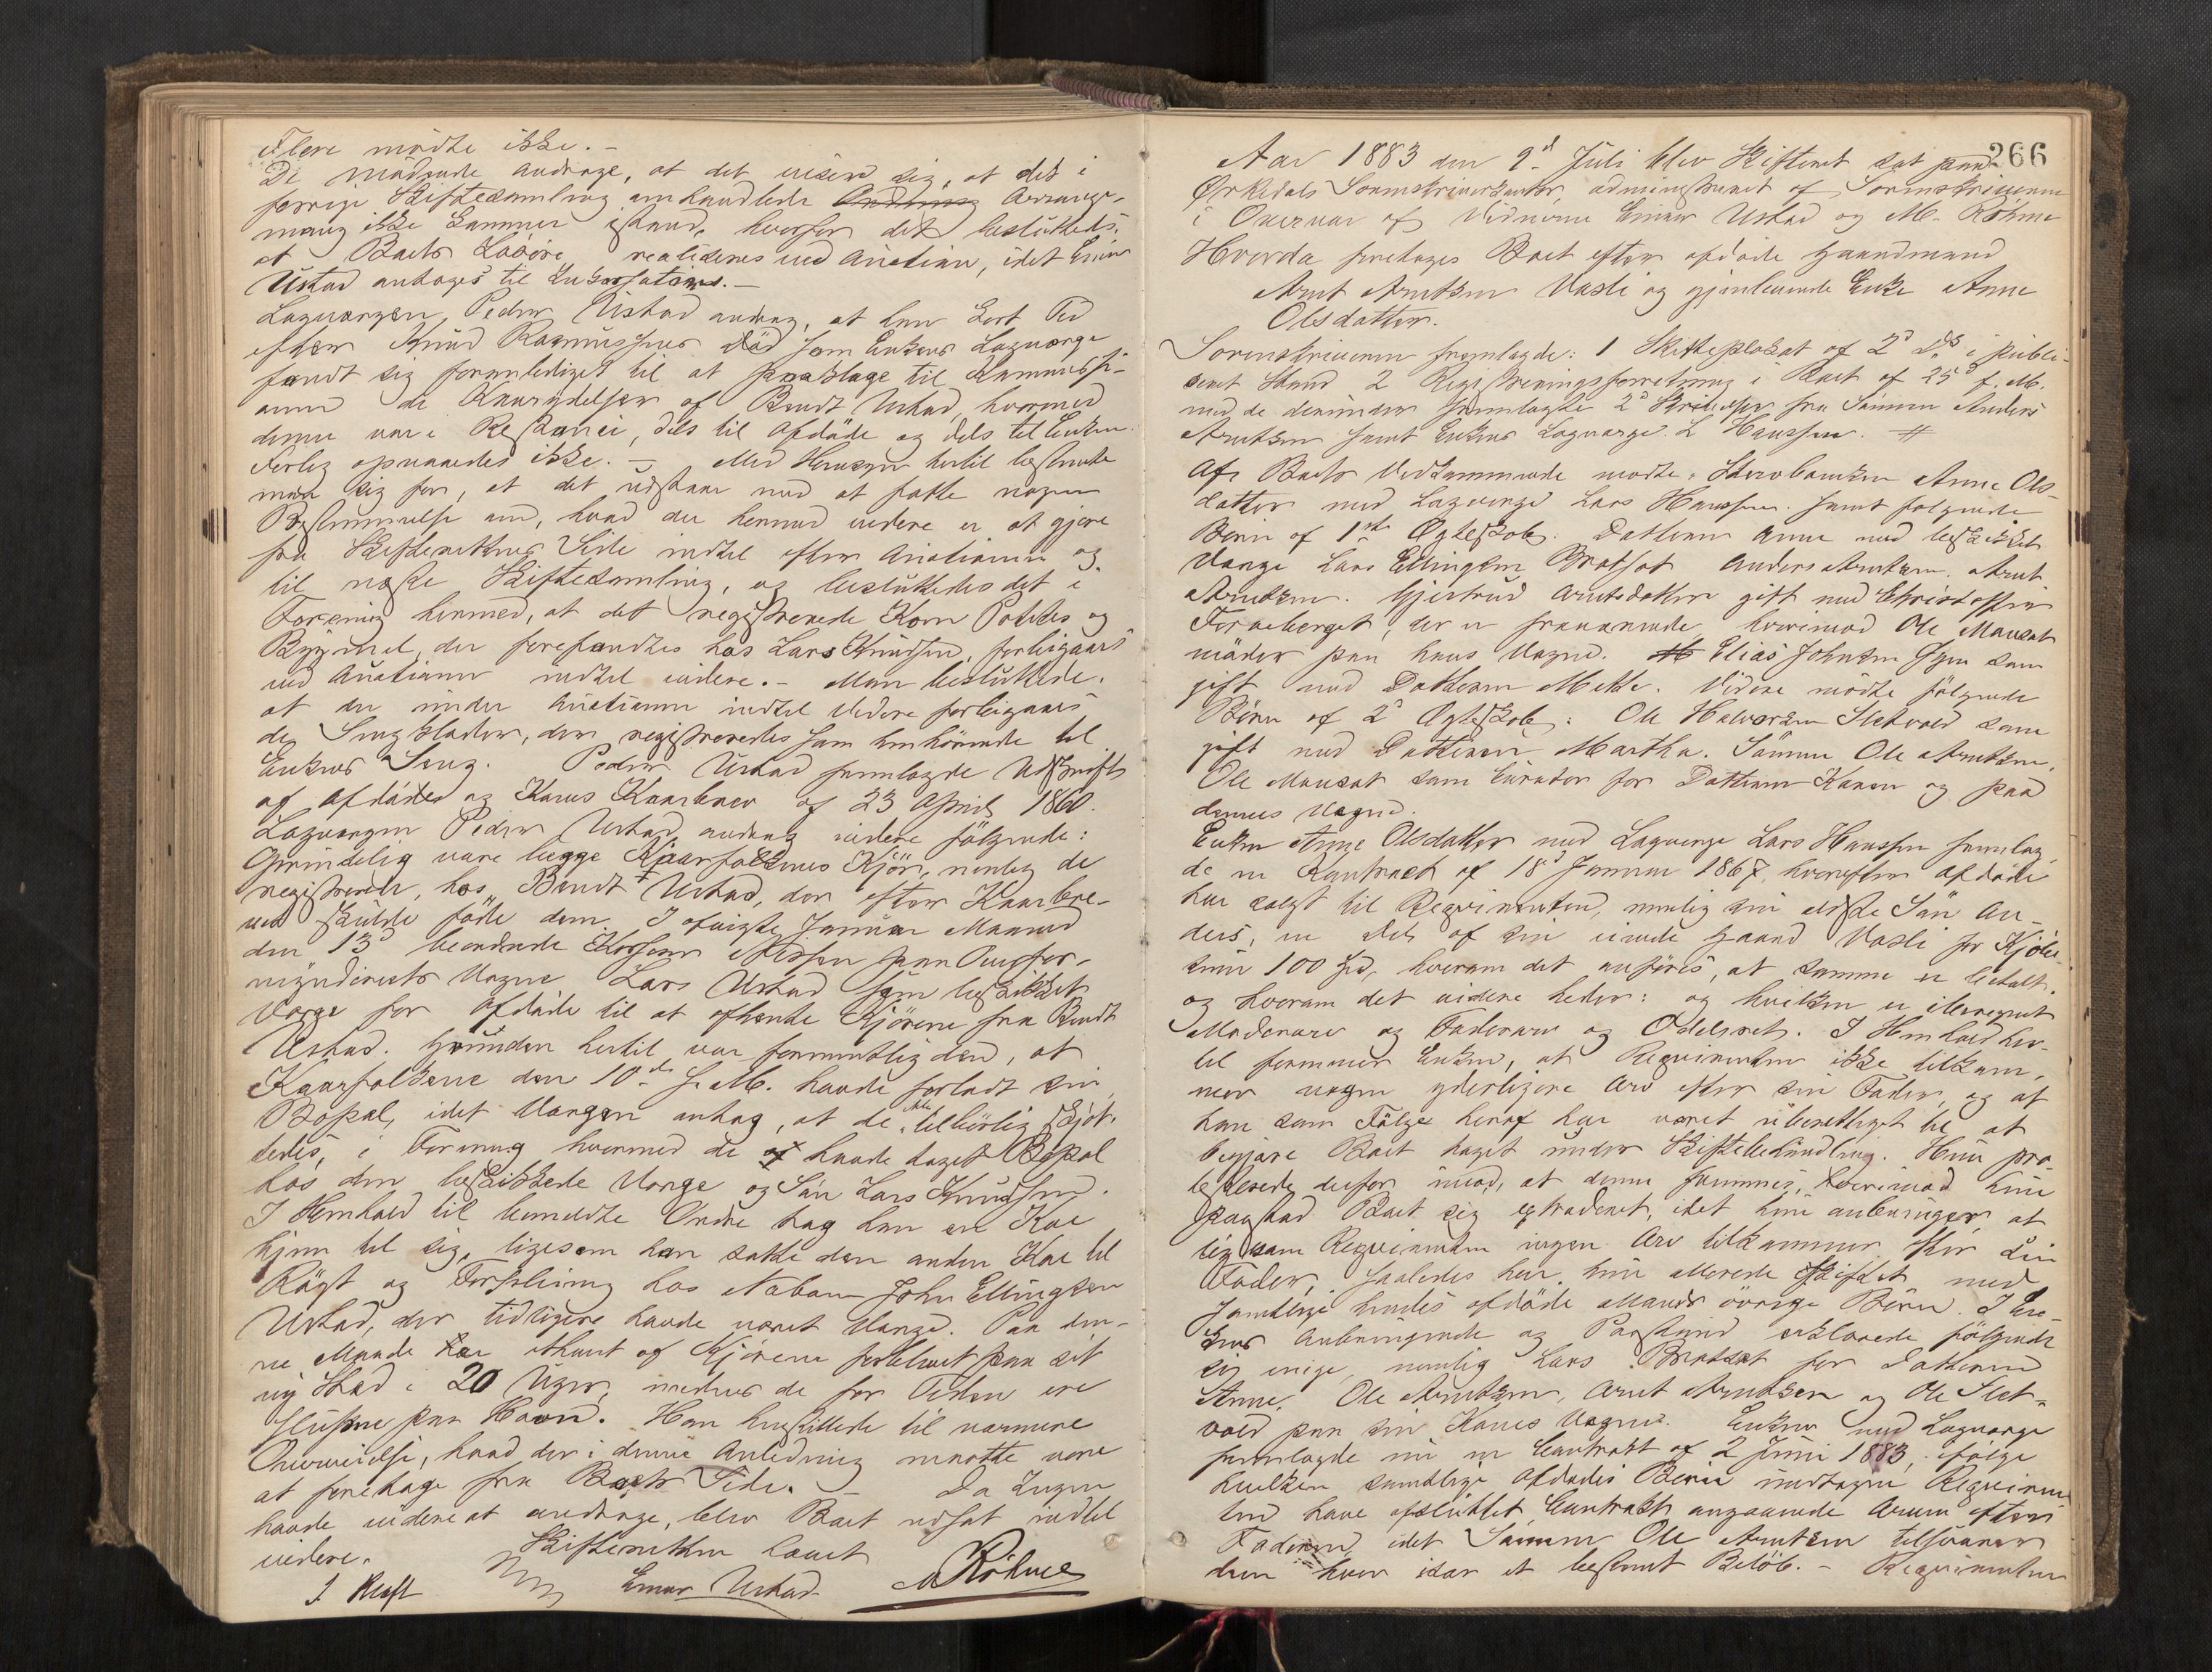 Flere mødte ikke. –
De mødende androge, at det viser sig, at det i
forrige Skiftesamling omhandlede Arrange-
mang ikke kommer istand, hvorfor det besluttedes,
at Boets Løsøre realiseres ved Auction, idet Einar
Ustad antages til Inkassator. –
Lagvergen, Peder Ustad androg, at han kort Tid
efter Knud Rasmussens Død som Enkens Lagverge
fandt sig foranlediget til at paaklage til Kommissi-
onen de Kaarydelser af Bendt Ustad, hvormed
denne var i Restance, dels til Afdøde og dels til Enken.
Forlig opnaaedes ikke. – Med Hensyn hertil bestemte
man sig for, at det udstaar med at fatte nogen
Bestemmelse om, hvad der hermed videre er at gjøre
fra Skifterettens Side indtil efter Auctionen og
til næste Skiftesamling, og besluttedes det i
Forening hermed, at det registrerede Korn Potetes og
Bygmel, der forefandtes hos Lars Knudsen, forbigaaes
ved Auctionen indtil videre. – Man besluttede,
at der under Auctionen indtil videre forbigaaes
de Sengklæder, der registreredes som henhørende til
Enkens Seng. Peder Ustad fremlagde Udskrift
af Afdødes og Kones Kaarbrev af 23 April 1860.
Lagvergen Peder Ustad androg videre følgende:
Oprindelig vare begge Kaarfolkenes Kjør, nemlig de
registrerede, hos Bendt Ustad, der efter Kaarbre-
vet skulde føde dem. I afvigte Januar Maaned
den 13d beordrede Nissen paa Overfor-
mynderiets Vegne Lars Ustad som beskikket
Verge for Afdøde til at afhente Kjørene fra Bendt
Ustad. Grunden hertil var formentlig den, at
Kaarfolkene den 10de s. M. havde forladt sin
Bopæl, idet Vergen antog, at de ikke tilbørlig skjøt-
tedes, i Forening hvormed de havde taget Bopæl
hos den beskikkede Verge og Søn Lars Knudsen.
I Henhold til bemeldte Ordre tog han en Ko
hjem til sig, ligesom han satte den anden Ko til
Røgt og Forpleining hos Naboen John Ellingsen
Ustad, der tidligere havde været Verge. Paa den-
ne Maade har ethvert af Kjørene forblevet paa sit
nye Sted i 20 Uger, medens de for Tiden ere
slupne paa Havn. Han henstillede til nærmere
Overveielse, hvad der i denne Anledning maatte være
at foretage fra Boets Side. – Da Ingen
havde videre at andrage, blev Boet udsat indtil
videre. Skifteretten hævet
I. Kraft Einar Ustad M Röhme
266
Aar 1883 den 9d Juli blev Skifteret sat paa
Ørkedals Sorenskriverkontor, administreret af Sorenskriveren
i Overvær af Vidnerne Einar Ustad og M. Röhme
Hvorda foretoges Boet efter afdøde Gaardmand
Arnt Arntsen Vasli og gjenlevende Enke Anne
Olsdatter.
Sorenskriveren fremlagde: 1 Skifteplakat af 2d Ds i publi-
ceret Stand 2 Registreringsforretning i Boet af 25d f. M.
med de derunder fremlagte 2d Skrivelser fra Sønnen Anders
Arntsen samt Enkens Lagverge L Hansen. #
Af Boets Vedkommende mødte: Stervboenken Anne Ols-
datter med Lagverge Lars Hansen samt følgende
Børn af 1ste Ægteskab: Datteren Anne med beskikket
Verge Lars Ellingsen Bratset Anders Arntsen. Arnt
Arntsen. Gjertrud Arntsdatter gift med Christoffer
Foraeberget, der er fraværende, hvorimod Ole Mauset
møder paa hans Vegne. Elias Johnsen som
gift med Datteren Mette. Videre mødte følgende
Børn af 2d Ægteskab: Ole Halvorsen Sletvold som
gift med Datteren Martha. Sønnen Ole Arntsen,
Ole Mauset som Curator for Datteren Karen og paa
dennes Vegne.
Enken Anne Olsdatter med Lagverge Lars Hansen fremlag-
de en Kontract af 18d Januar 1867, hvorefter Afdøde
har solgt til Reqvirenten, nemlig sin eldste Søn An-
ders, en Del af sin eiende Gaard Vasli for Kjøbe-
sum 100 Spd, hvorom det anføres, at samme er betalt,
og hvorom det videre heder: og hvilken er iberegnet
Moderarv og Faderarv og Odelsret. I Henhold her-
til formener Enken, at Reqvirenten ikke tilkom-
mer nogen yderligere Arv efter sin Fader, og at
han som Følge heraf har været uberettiget til at
begjære Boet taget under Skiftebehandling. Hun pro-
testerede derfor imod, at denne fremmes, hvorimod hun
paastod Boet sig extraderet, idet hun anbringer, at
ligesom Reqvirenten ingen Arv tilkommer efter sin
Fader, saaledes har hun allerede skiftet med
samtlige hendes afdøde Mands øvrige Børn. I En-
kens Anbringende og Paastand erklærede følgende
sig enige, nemlig Lars Bratset for Datteren
Anne, Ole Arntsen, Arnt Arntsen og Ole Slet-
vold paa sin Kones Vegne. Enken med Lagverge
fremlagde nu en Contrakt af 2 Juni 1883, ifølge
hvilken samtlige Afdødes Børn undtagen Reqviren-
ten have afsluttet Contrakt angaaende Arven efter
Faderen, idet Sønnen Ole Arntsen tilsvarer
dem hver især et bestemt Beløb. – Reqvirenten